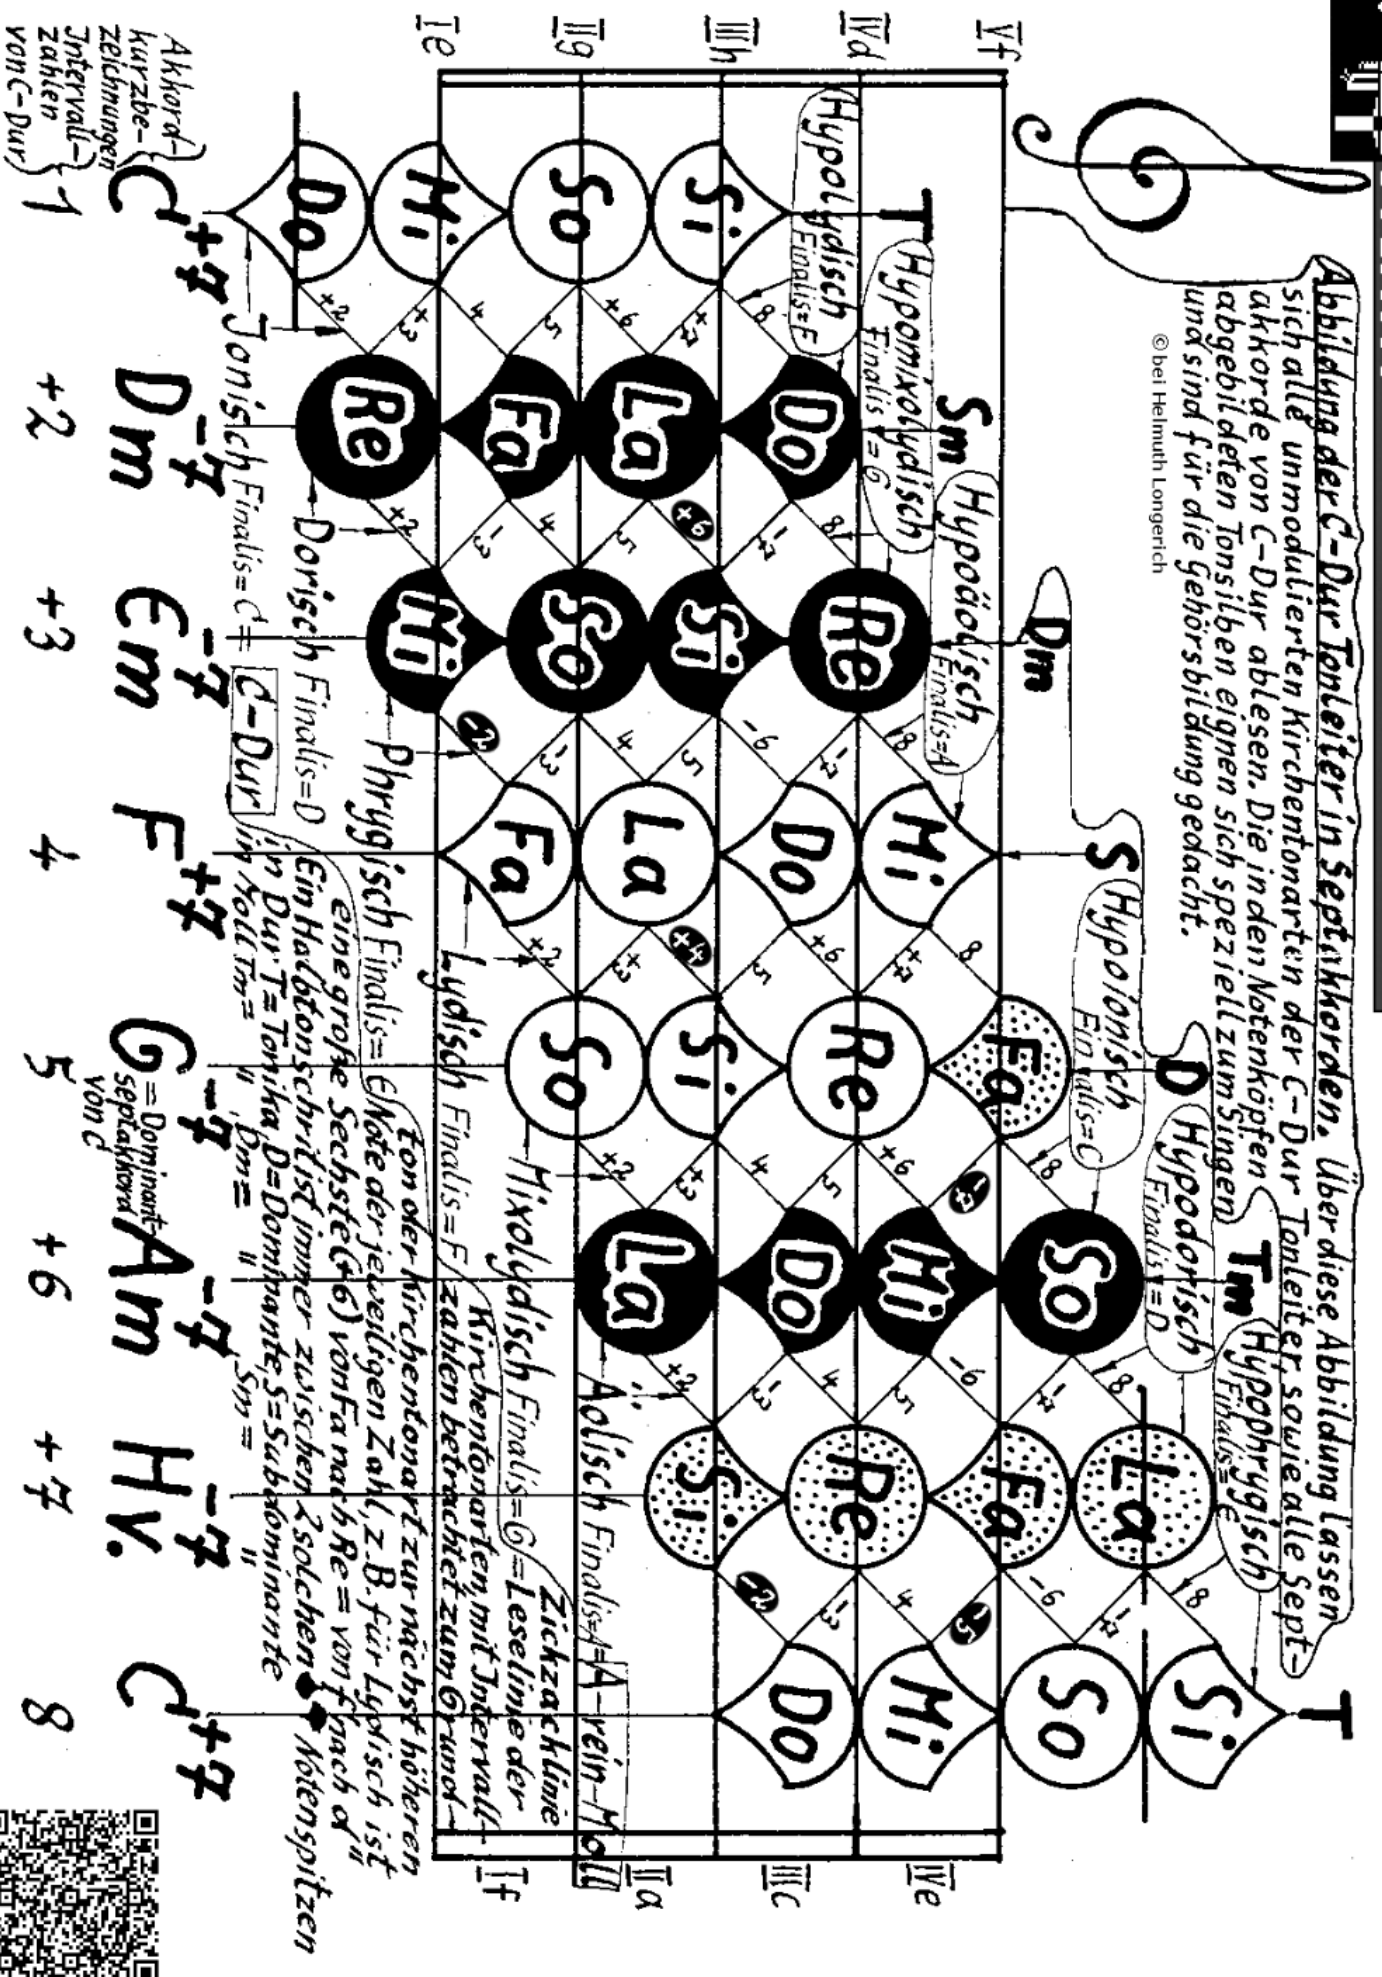 Abbildung der C-Dur Tonleiter in Septakkorden. Über diese Abbildung lassen
sich alle unmodulierten Kirchentonarten der C-Dur Tonleiter, sowie alle Sept-
akkorde von C-Dur ablesen. Die in den Notenköpfen
abgebildeten Tonsilben eignen sich speziell zum Singen
und sind für die Gehörsbildung gedacht.
© bei Helmuth Longerich
T
Sm
Dm
S
D
Tm
T
Hypolydisch
Finalis=F
Hypomixolydisch
Finalis=G
Hypoäolisch
Finalis=A
Hypoionisch
Finalis=C
Hypodorisch
Finalis=D
Hypophrygisch
Finalis=E
Vf
IVd
IIIh
IIg
Ie
IVe
IIIc
IIa
If
Si
So
Mi
Do
+2
+3
4
5
+6
+7
8
Do
La
Fa
Re
+2
-3
4
5
+6
-7
8
Re
Si
So
Mi
-2
-3
4
5
-6
-7
8
Mi
Do
La
Fa
+2
+3
+4
5
+6
+7
8
Fa
Re
Si
So
+2
+3
4
5
+6
-7
8
So
Mi
Do
La
+2
-3
4
5
-6
-7
8
La
Fa
Re
Si
-2
-3
4
-5
-6
-7
8
Si
So
Mi
Do
Jonisch Finalis=C= C-Dur
Dorisch Finalis=D
Phrygisch Finalis=E
Lydisch Finalis=F
Mixolydisch Finalis=G
Äolisch Finalis=A=A-rein-Moll
Zickzacklinie
=Leselinie der
Kirchentonarten, mit Intervall-
zahlen betrachtet zum Grund-
ton der Kirchentonart zur nächst höheren
Note der jeweiligen Zahl, z.B. für Lydisch ist
eine große Sechste (+6) von Fa nach Re = von f nach d"
Ein Halbtonschritt ist immer zwischen 2 solchen Notenspitzen
in Dur T=Tonika, D=Dominante, S=Subdominante
in Moll Tm= " Dm= " Sm= "
Akkord-
kurzbe-
zeichnungen
C+7
Dm-7
Em-7
F+7
G-7
=Dominant-
septakkord
von C
Am-7
Hv.-7
C+7
Intervall-
zahlen
von C-Dur
1
+2
+3
4
5
+6
+7
8